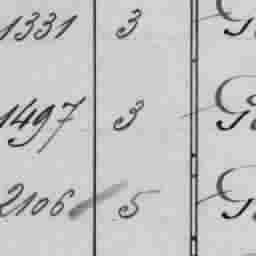 1331 3
1497 3
2106 5